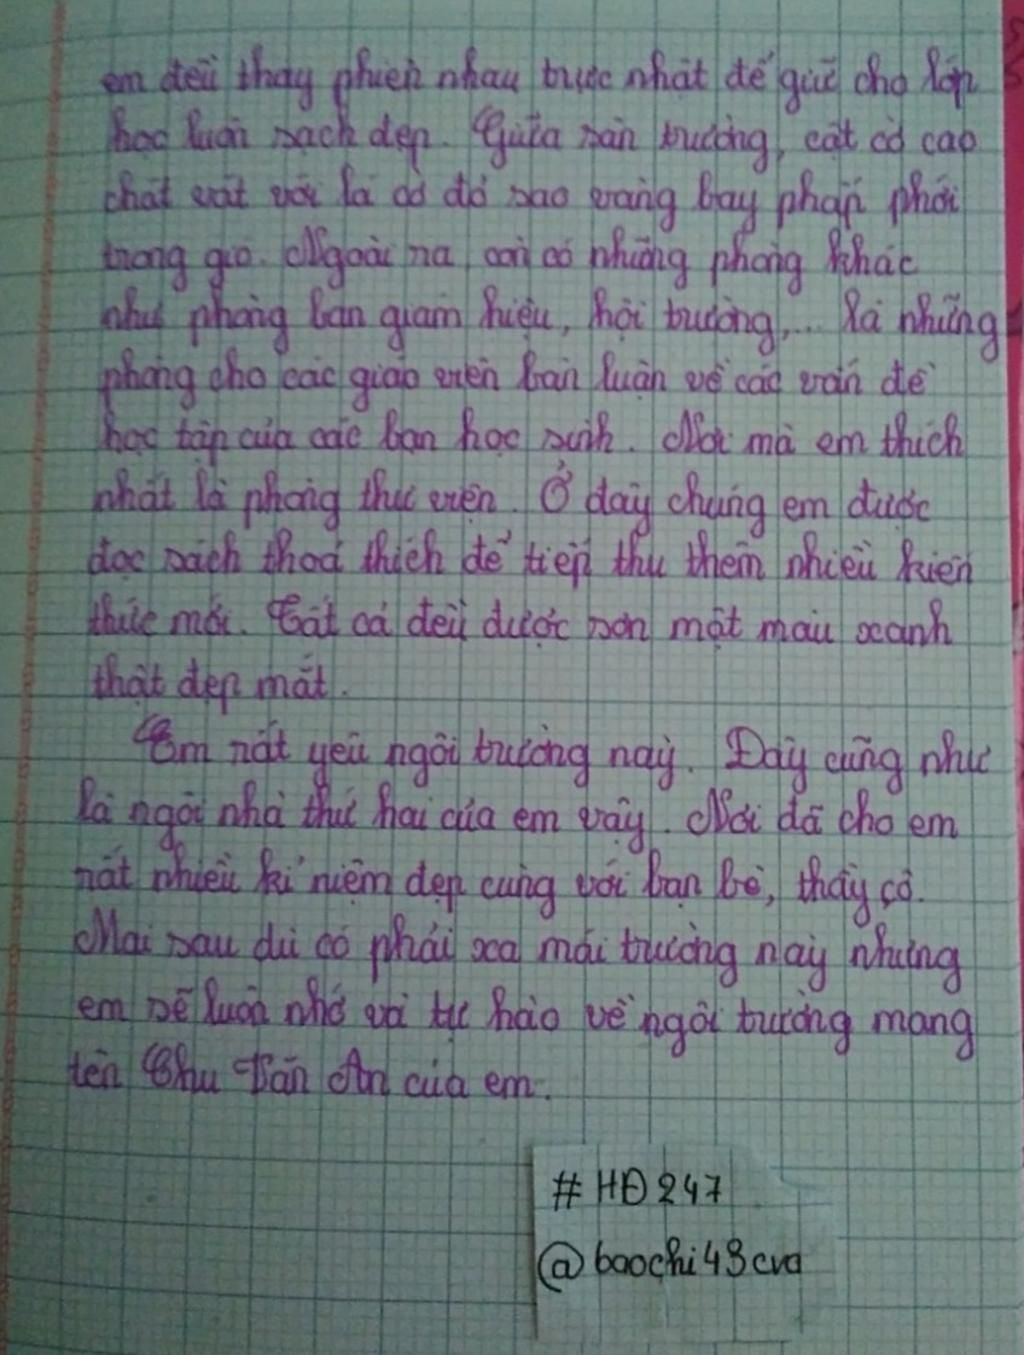 em đều thay phiên nhau trực nhật để giữ cho lớp
học luôn sạch đẹp. Giữa sân trường, cột cờ cao
chót vót với lá cờ đỏ sao vàng bay phấp phới
trong gió. Ngoài ra, còn có những phòng khác
như phòng ban giám hiệu, hội trường,... là những
phòng cho các giáo viên bàn luận về các vấn đề
học tập của các bạn học sinh. Nơi mà em thích
nhất là phòng thư viện. Ở đây chúng em được
đọc sách thoả thích để tiếp thu thêm nhiều kiến
thức mới. Tất cả đều được sơn một màu xanh
thật đẹp mắt.
Em rất yêu ngôi trường này. Đây cũng như
là ngôi nhà thứ hai của em vậy. Nơi đã cho em
rất nhiều kỉ niệm đẹp cùng với bạn bè, thầy cô.
Mai sau dù có phải xa mái trường này nhưng
em sẽ luôn nhớ và tự hào về ngôi trường mang
tên Chu Văn An của em.
#HĐ247
@baochi43cva